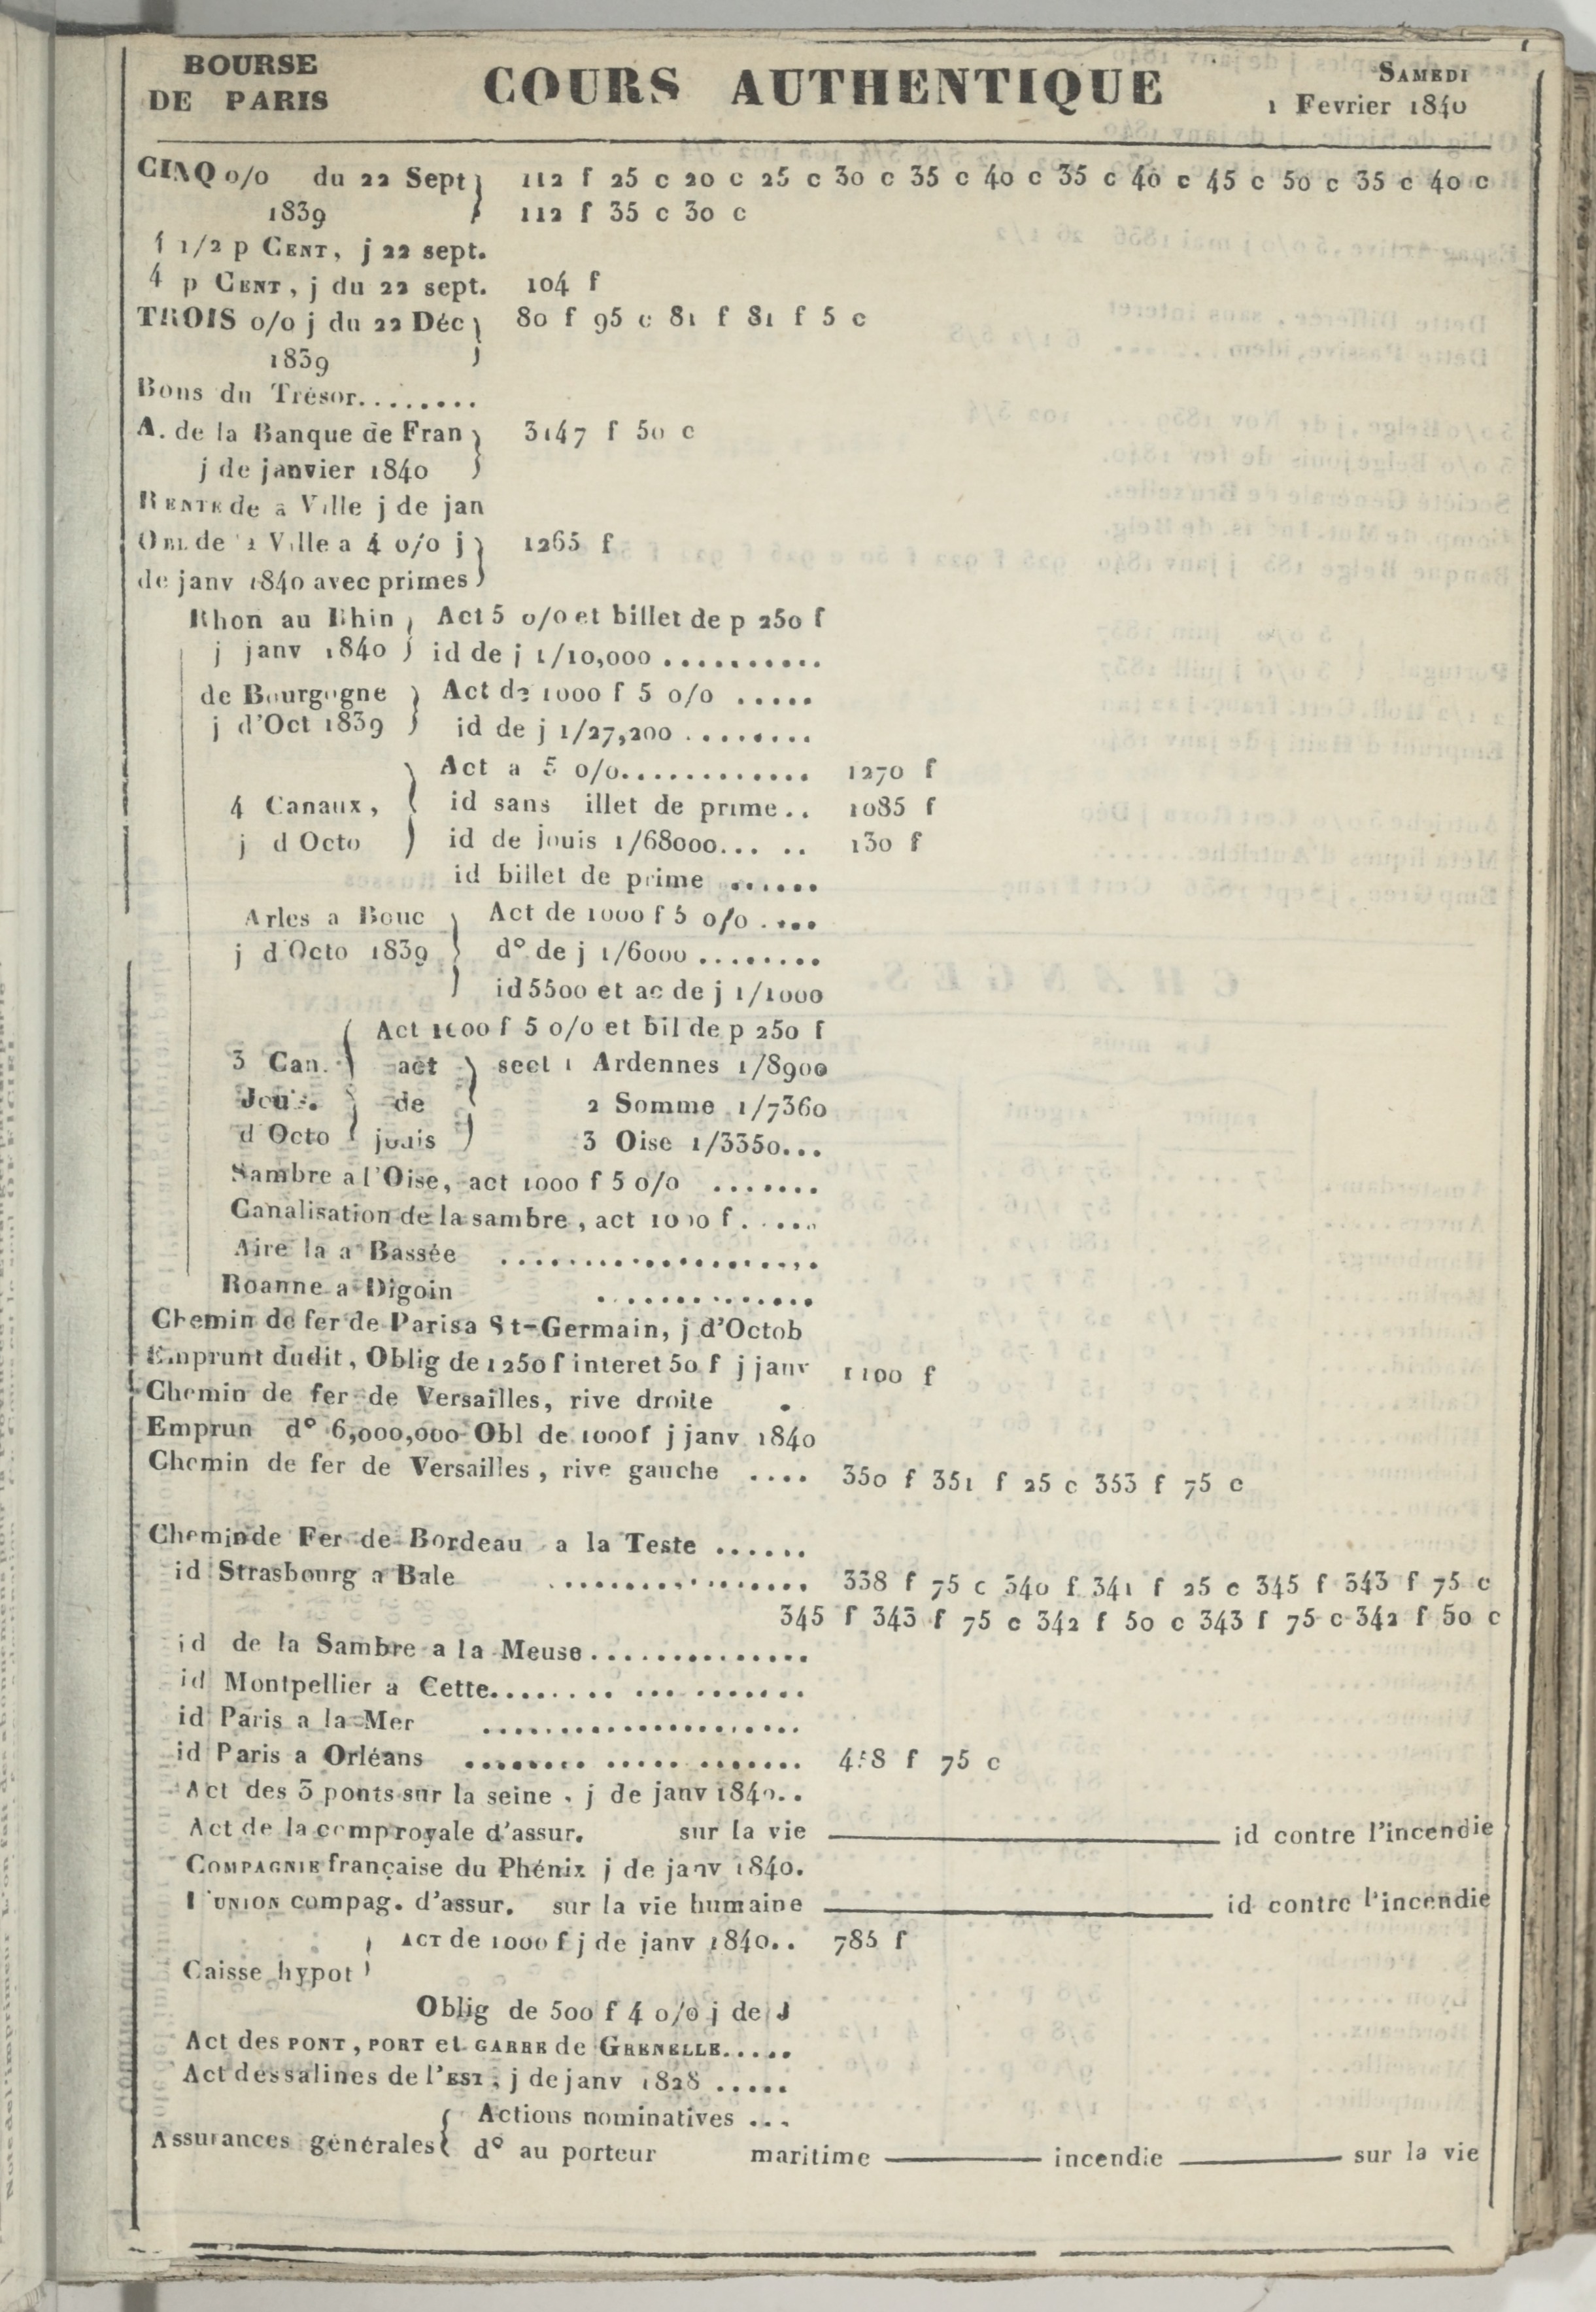 BOURSE
DE PARIS
COURS AUTHENTIQUE
SAMEDI
1 Fevrier 1840
CINQ o/o du 22 Sept 112 f 25 c 20 c 25 c 30 c 35 c 40 c 35 c 40 c 45 c 50 c 35 c 40 c
1839 112 f 35 c 30 c
4 1/2 p CENT, j 22 sept.
4 p CENT, j du 22 sept. 104 f
TROIS o/o j du 22 Déc 80 f 95 c 81 f 81 f 5 c
1839
Bons du Trésor........
A. de la Banque de Fran 3147 f 50 c
j de janvier 1840
RENTE de a Ville j de jan
OBL de Ville a 4 o/o j 1265 f
de janv 1840 avec primes
Rhon au Rhin Act 5 o/o et billet de p 250 f
j janv 1840 id de j 1/10,000 ..........
de Bourgogne Act de 1000 f 5 o/o .....
j d'Oct 1839 id de j 1/27,200 ........
Act a 5 o/o............ 1270 f
4 Canaux, id sans illet de prime.. 1085 f
j d Octo id de jouis 1/68000... .. 130 f
id billet de prime ......
Arles a Bouc Act de 1000 f 5 o/o ....
j d'Octo 1839 d° de j 1/6000 ........
id 5500 et ac de j 1/1000
Act 1000 f 5 o/o et bil de p 250 f
3 Can. act sect 1 Ardennes 1/8900
Jouis. de 2 Somme 1/7360
d Octo jouis 3 Oise 1/3350...
Sambre a l'Oise, act 1000 f 5 o/o .......
Canalisation de la sambre, act 1000 f.....
Aire la a Bassée ...................
Roanne a Digoin .............
Chemin de fer de Paris a St-Germain, j d'Octob
Emprunt dudit, Oblig de 1250 f interet 50 f j janv 1100 f
Chemin de fer de Versailles, rive droite .
Emprun d° 6,000,000 Obl de 1000f j janv 1840
Chemin de fer de Versailles, rive gauche .... 350 f 351 f 25 c 353 f 75 c
Chemin de Fer de Bordeau a la Teste ......
id Strasbourg a Bale ................ 338 f 75 c 340 f 341 f 25 c 345 f 343 f 75 c
345 f 343 f 75 c 342 f 50 c 343 f 75 c 342 f 50 c
id de la Sambre a la Meuse..............
id Montpellier a Cette........ ... .......
id Paris a la Mer ....................
id Paris a Orléans ........ ..... ....... f 75 c
Act des 3 ponts sur la seine, j de janv 1840..
Act de la comp royale d'assur. sur la vie id contre l'incendie
COMPAGNIE française du Phénix j de janv 1840.
l'UNION compag. d'assur. sur la vie humaine id contre l'incendie
ACT de 1000 f j de janv 1840.. 785 f
Caisse hypot
Oblig de 500 f 4 o/o j de J
Act des PONT, PORT et GARRE de GRENELLE.....
Act des salines de l'EST, j de janv 1828 .....
Actions nominatives ...
Assurances générales d° au porteur maritime incendie sur la vie